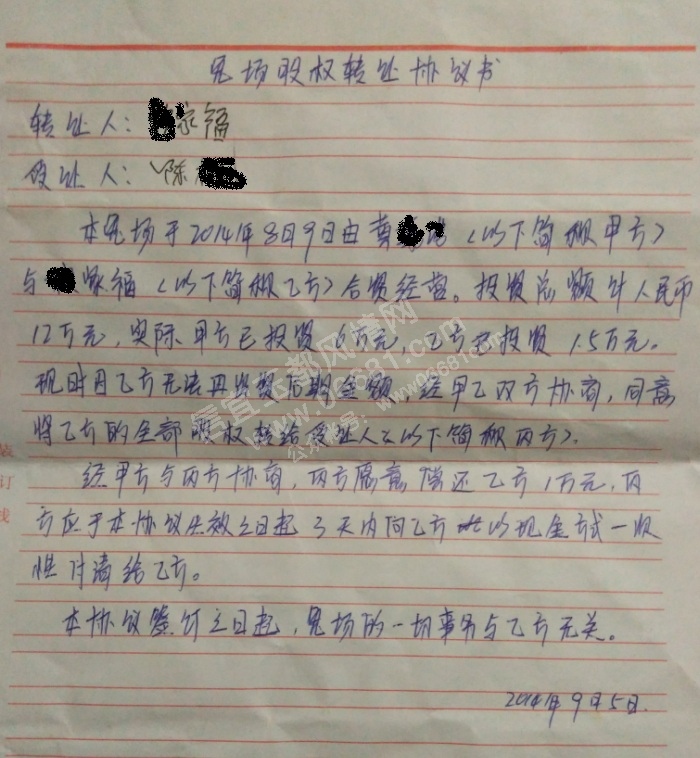 兔场股权转让协议书
转让人：家福
受让人：陈
本兔场于2014年8月9日由黄 （以下简称甲方）
与 家福（以下简称乙方）合资经营。投资总额计人民币
12万元，实际甲方已投资6万元，乙方已投资1.5万元。
现时因乙方无法再出资后期金额，经甲乙双方协商，同意
将乙方的全部股权转给受让人（以下简称丙方）。
经甲方与丙方协商，丙方愿意偿还乙方1万元，丙
方应于本协议生效之日起3天内向乙方以现金方式一次
性付清给乙方。
本协议签订之日起，兔场的一切事务与乙方无关。
2014年9月5日.
信宜玉都风情网
www.06681.com
公众帐号：www06681com
装
订
线